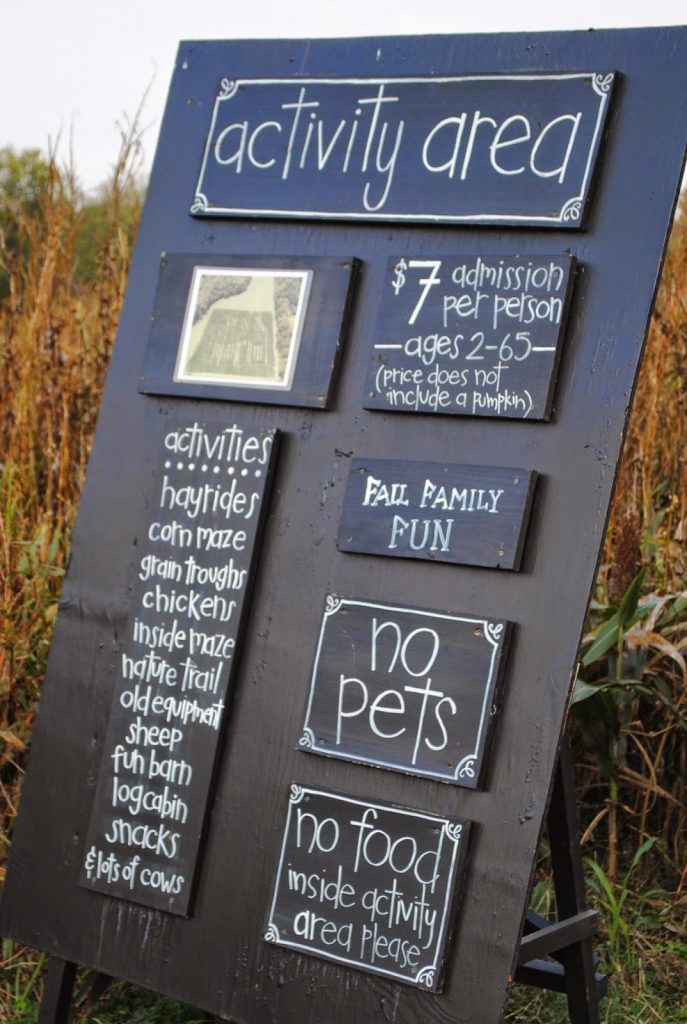 activity area
$7 admission
per person
-ages 2-65-
(price does not
include a pumpkin)
activities
hayrides
corn maze
grain troughs
chickens
inside maze
nature trail
old equipment
sheep
fun barn
log cabin
snacks
& lots of cows
FALL FAMILY
FUN
no
pets
no food
inside activity
area please